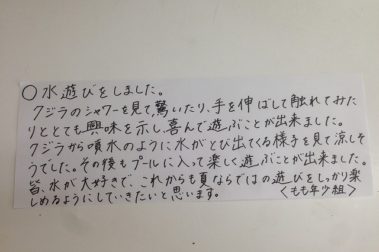 ○水遊びをしました。
クジラのシャワーを見て驚いたり、手を伸ばして触れてみた
りととても興味を示し、喜んで遊ぶことが出来ました。
クジラから噴水のように水がとび出てくる様子を見て涼しそ
うでした。その後もプールに入って楽しく遊ぶことが出来ました。
皆、水が大好きで、これからも夏ならではの遊びをしっかり楽
しめるようにしていきたいと思います。
<もも年少組>